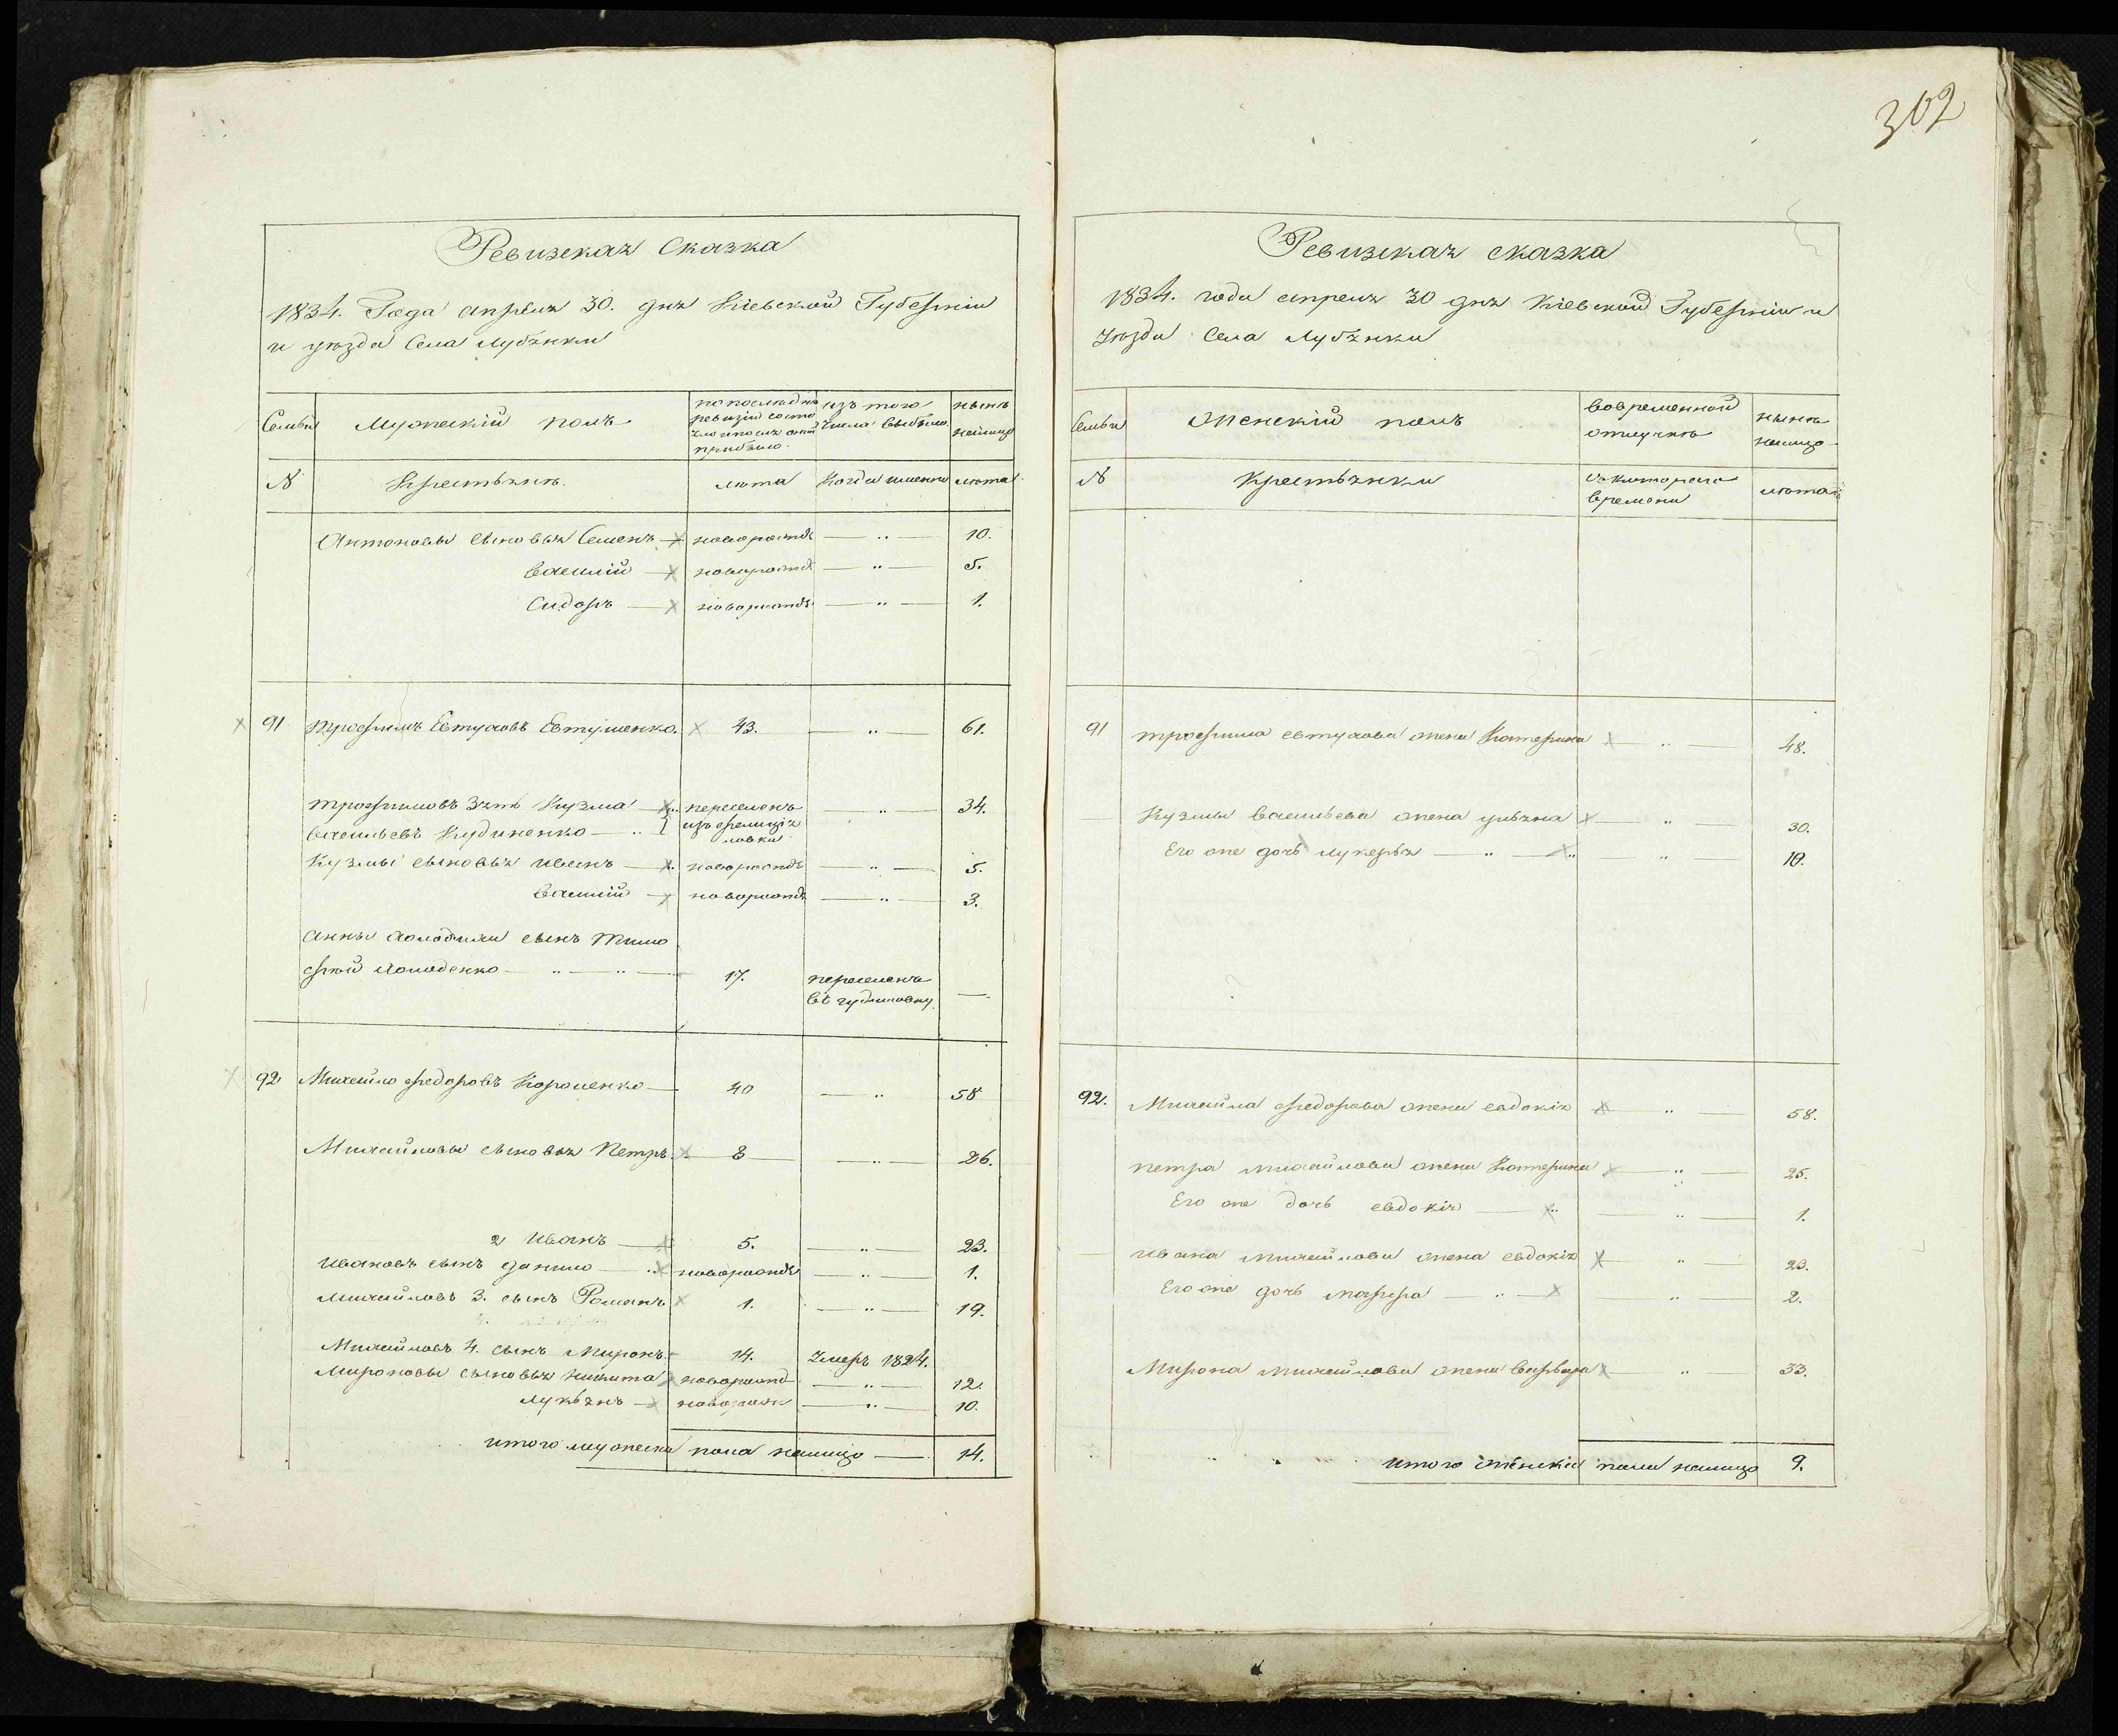 302
Ревизская Сказка
1834. Года апреля 30. дня Кіевской Губерніи
и уезда Села Лубянки
Семьи
Мужескій полъ
по последней
ревизіи состо
яло и после оной
прибыло.
изъ того
числа выбыло
ныне
налицо
№
Крестьяне.
лета
Когда именно
лета
Антоновы сыновья Семенъ — новорожд — „ — 10.
Василій — новорожд — „ — 5.
Сидоръ — новорожд — „ — 1.
91 Трофимъ Евтуховъ Евтушенко. 43. — „ — 61.
Трофимовъ зять Кузма — переселенъ — „ — 34.
Васильевъ Кудиненко — „ изъ
ловки
Кузмы сыновья Иванъ — новорожд — „ — 5.
Василій — новорожд — „ — 3.
Анны сынъ Тимо
фей — „ — „ — 17. переселенъ —.
въ
92 Михайло Федоровъ Короленко — 40 — „ 58
Михайловы сыновья Петръ. 8 — „ — 26.
2 Иванъ — 5. — „ — 23.
Ивановъ сынъ Данило — „ новорожд — „ — 1.
Михайловъ 3. сынъ Романъ 1. — „ — 19.
Михайловъ 4. сынъ Миронъ 14. Умеръ 1824.
Мироновы сыновья Никита новорожд — „ — 12.
Лукьянъ — новорожд — „ — 10.
итого мужеска пола налицо — 14.
Ревизская сказка
1834. года апреля 30 дня Кіевской Губерніи и
Уезда Села Лубянки
Семьи
Женскій полъ
Вовременной
отлучке
ныне
налицо
№
Крестьянки
съ котораго
времени
лета
91 Трофима Евтухова жена Катерина — „ — 48.
Кузмы Васильева жена Ульяна — „ — 30.
Его же дочь Лукерья — „ — „ — 10.
92. Михайла Федорова жена Евдокія — „ — 58.
Петра Михайлова жена Катерина — „ — 25.
Его же дочь Евдокія — „ — „ — 1.
Ивана Михайлова жена Евдокія — „ — 23.
Его же дочь Марфа — „ — „ — 2.
Мирона Михайлова жена Варвара — „ — 33.
итого женска пола налицо 9.